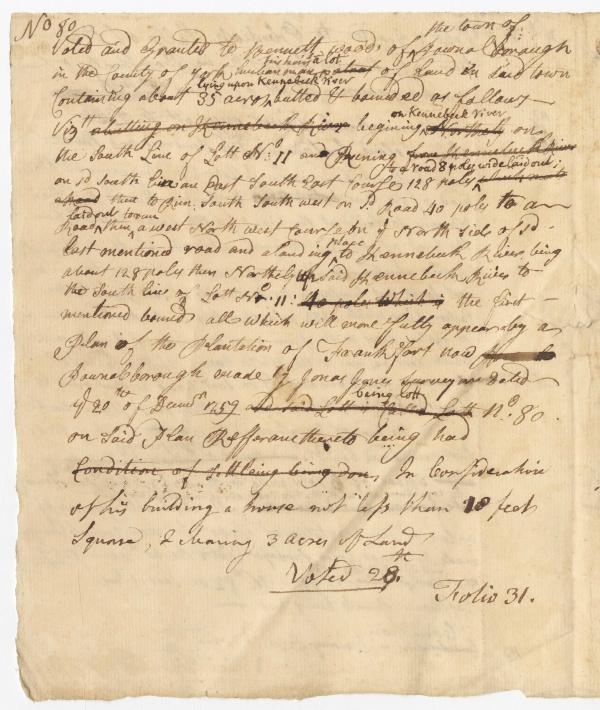 No 80
the town of
Voted and Granted to Bennett woods of Pownalborough
in the County of York a lot of Land in Said town
lying upon Kennebeck River
Containing about 35 acres butted & bounded as follows
on Kennebeck River
Viz.tt abutting on Kennebeck River begining Northerly on
the South Line of Lott No. 11 and Runing from Kennebeck River
to a road 8 poles wide laid out;
on sd South line an East South East Course 128 poles
then to Run South South west on sd. Road 40 poles to an
laid out town
Road, then a west North west Course on ye North side of sd.
last mentioned road and a landing place to Kennebeck River, being
about 128 poles then Northerly up Said Kennebeck River to
the South line of Lott No. 11: 40 poles Which is the first
mentioned bounds all which will more fully appear by a
Plan of the Plantation of Frankfort now
Pownalborough made by Jonas Jones Surveyor Dated
ye 20th of Decemr. 1759 and said Lott being lott No. 80
on Said Plan Refferance thereto being had
Condition of settleing being don, In Consideration
of his building a house not less than 18 feet
Square, & Clearing 3 acres of Land
Voted 28th.
Folio 31.